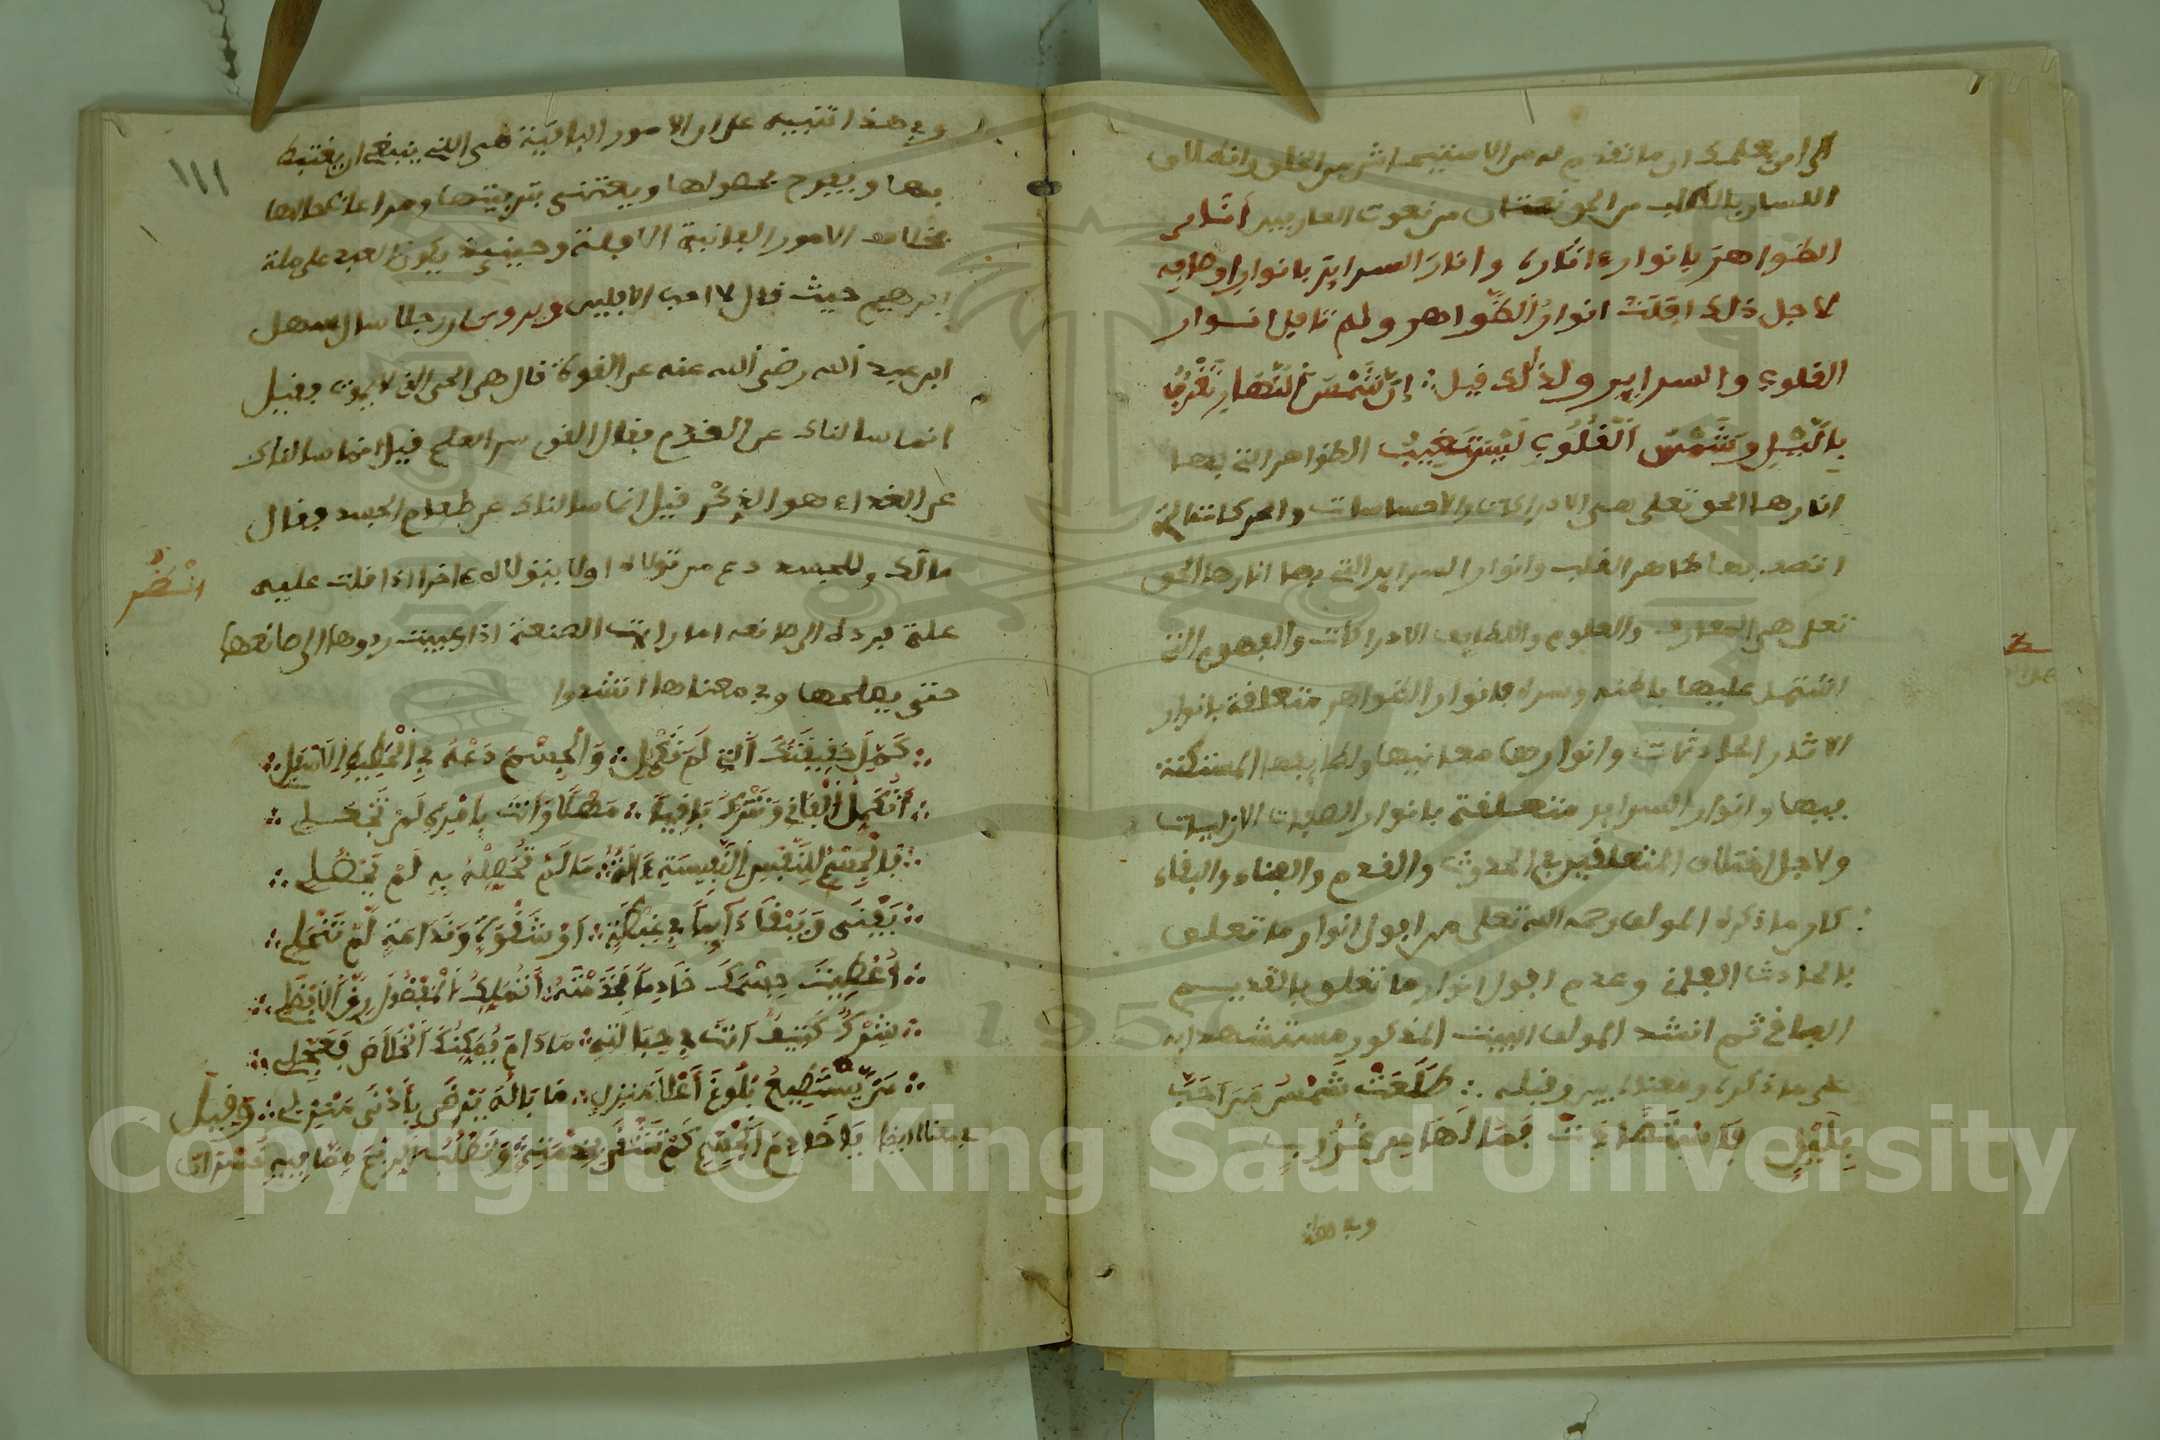 اللسان بالطلب من الحق نعتان من نعوت العارفين أنار
الظواهر بانوار ءاثاره وانار السراير بانوار اوصافه
لاجل ذلك افلت انوار الظواهر ولم تافل انوار
القلوب والسراير ولذلك قيل ∴ إن شمس النهار تغرب
بالليل وشمس القلوب ليس تغيب الظواهر التي بها
انارها الحق تعلى هي الادراكات والاحساسات والحركات التي
اتصف بها ظاهر القلب وانوار السراير التي بها انارها الحق
تعلى هي المعارف والعلوم واللطايف الادراكات والفهوم التي
اشتمل عليها باطنه وسره فانوار الظواهر متعلقة بانوار
الاثار الحادثات وانوارها معانيها ولطايفها المستكنة
فيها وانوار السراير متعلقة بانوار الصفات الازليات
ولاجل اختلاف المتعلقين في الحدوث والقدم والفناء والبقاء
كان ما ذكره المولف رحمه الله تعلى من افول انوار ما تعلق
بالحادث الفاني وعدم افول انوار ما تعلق بالقديم
الباقي ثم انشد المولف البيت المذكور مستشهدا به
على ما ذكره ومعناه بين وقبله ∴ طلعت شمس من احب
بليل فاستضاءت فما لها من غروب
وفي هذا
١١١
وفي هذا تنبيه على ان الامور الباقية هي التي ينبغي ان يغتبط
بها ويفرح بحصولها ويعتنى بتربيتها ومراعاة حالها
بخلاف الامور الفانية الافلة وحينيذ يكون العبد على ملة
ابرهيم حيث قال لا احب الافلين ويروى ان رجلا سال سهل
ابن عبد الله رضي الله عنه عن القوة قال هي الحي الذي لا يموت فقيل
انما سالناك عن القوام فقال القوام العلم قيل انما سالناك
عن الغذاء هو الذكر قيل انما سالناك عن طعام الجسد فقال
مالك وللجسد دع من تولاه اولا يتولاه ءاخرا اذا دخلت عليه
علة فرده الى صانعه اما رايت الصنعة اذا عيبت ردوها الى صانعها
حتى يصلحها وفي معناها انشدوا
انظر
∴ كمل حقيقتك التي لم تكمل ∴ والجسم دعه في الحضيض الاسفل ∴
∴ أتكمل الفاني وتترك باقيا ∴ هملا وانت بامره لم تحفل ∴
∴ فالجسم للنفس النفيسة ءالة ∴ ما لم تحصله به لم يحصل ∴
∴ يفنى وتبقى دايما في غبطة ∴ او شقوة وندامة لم تنجل ∴
∴ اعطيت جسمك خادما فخدمته ∴ أتملك المفضول رق الافضل ∴
∴ شرك كثيف انت في حبالته ∴ ما دام يمكنك الخلاص فعجل ∴
∴ من يستطيع بلوغ أعلا منزل ∴ ما باله يرضى بأدنى منزل ∴ وقيل
في معناه ايضا يا خادم الجسم كم تشقى بخدمته وتطلب الربح مما فيه خسران